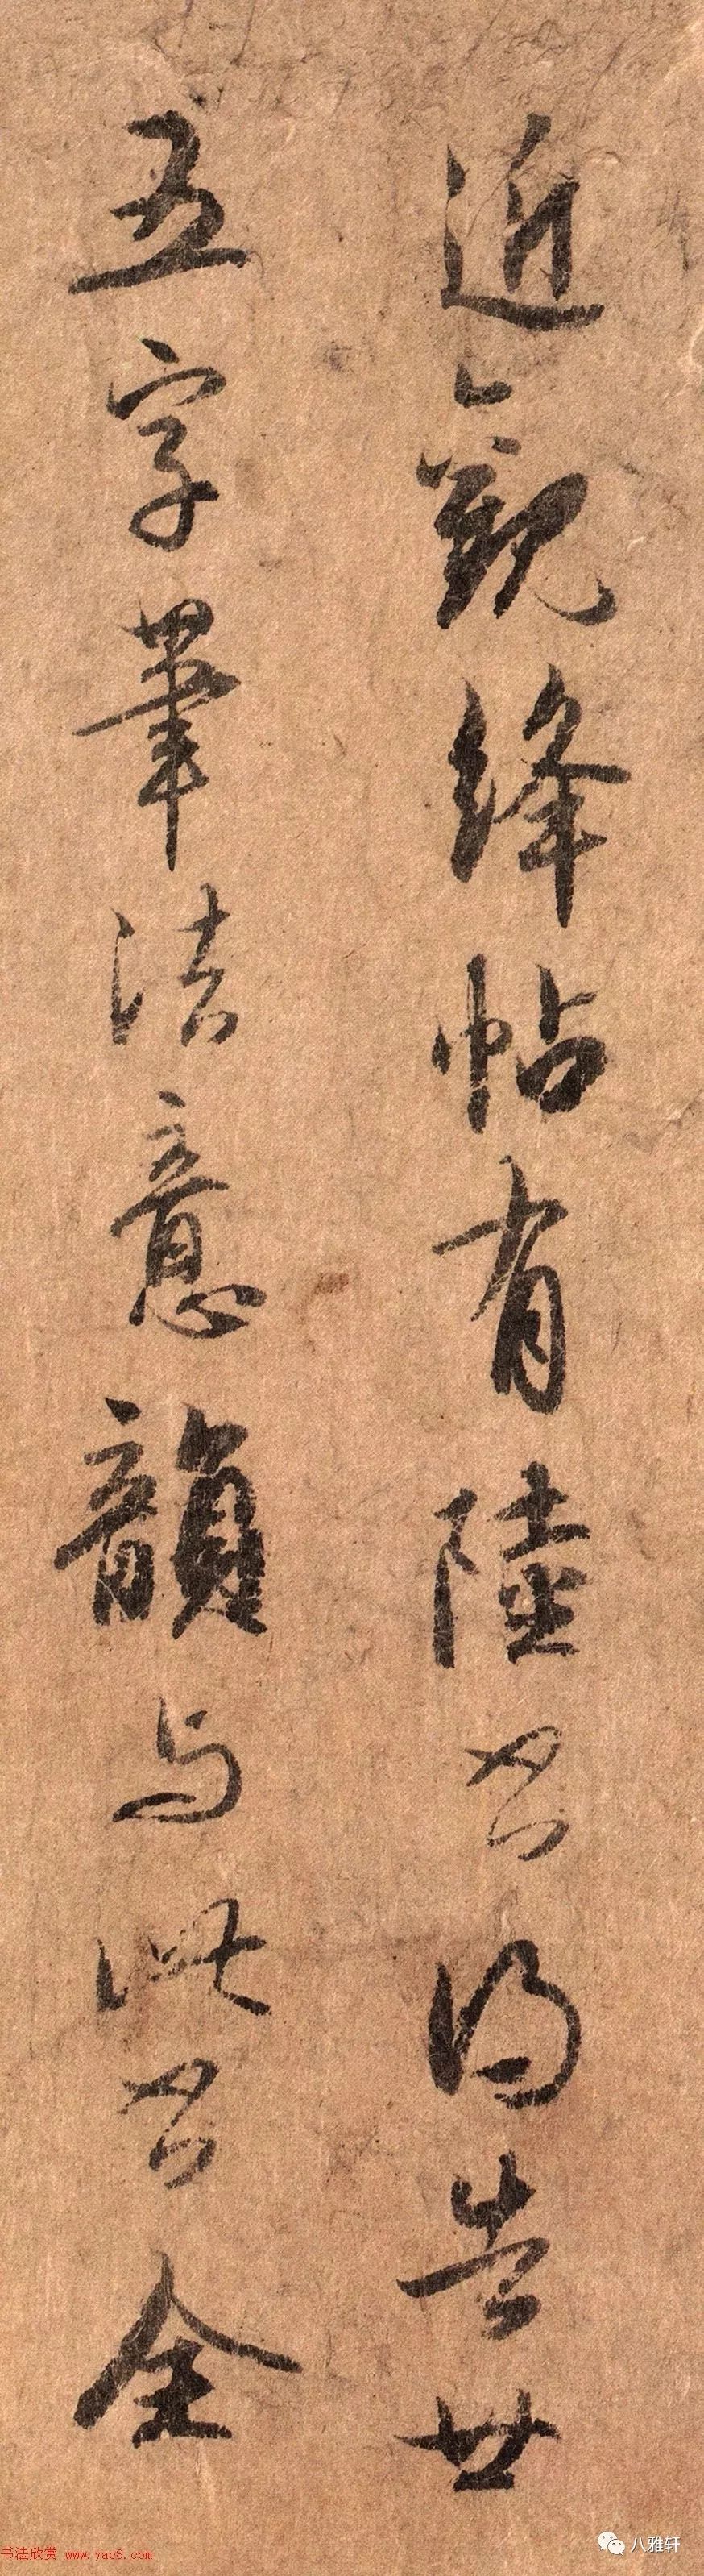 近觀絳帖有陸書得告廿
五字筆法意韻与此書全
书法欣赏 www.yac8.com
八雅轩